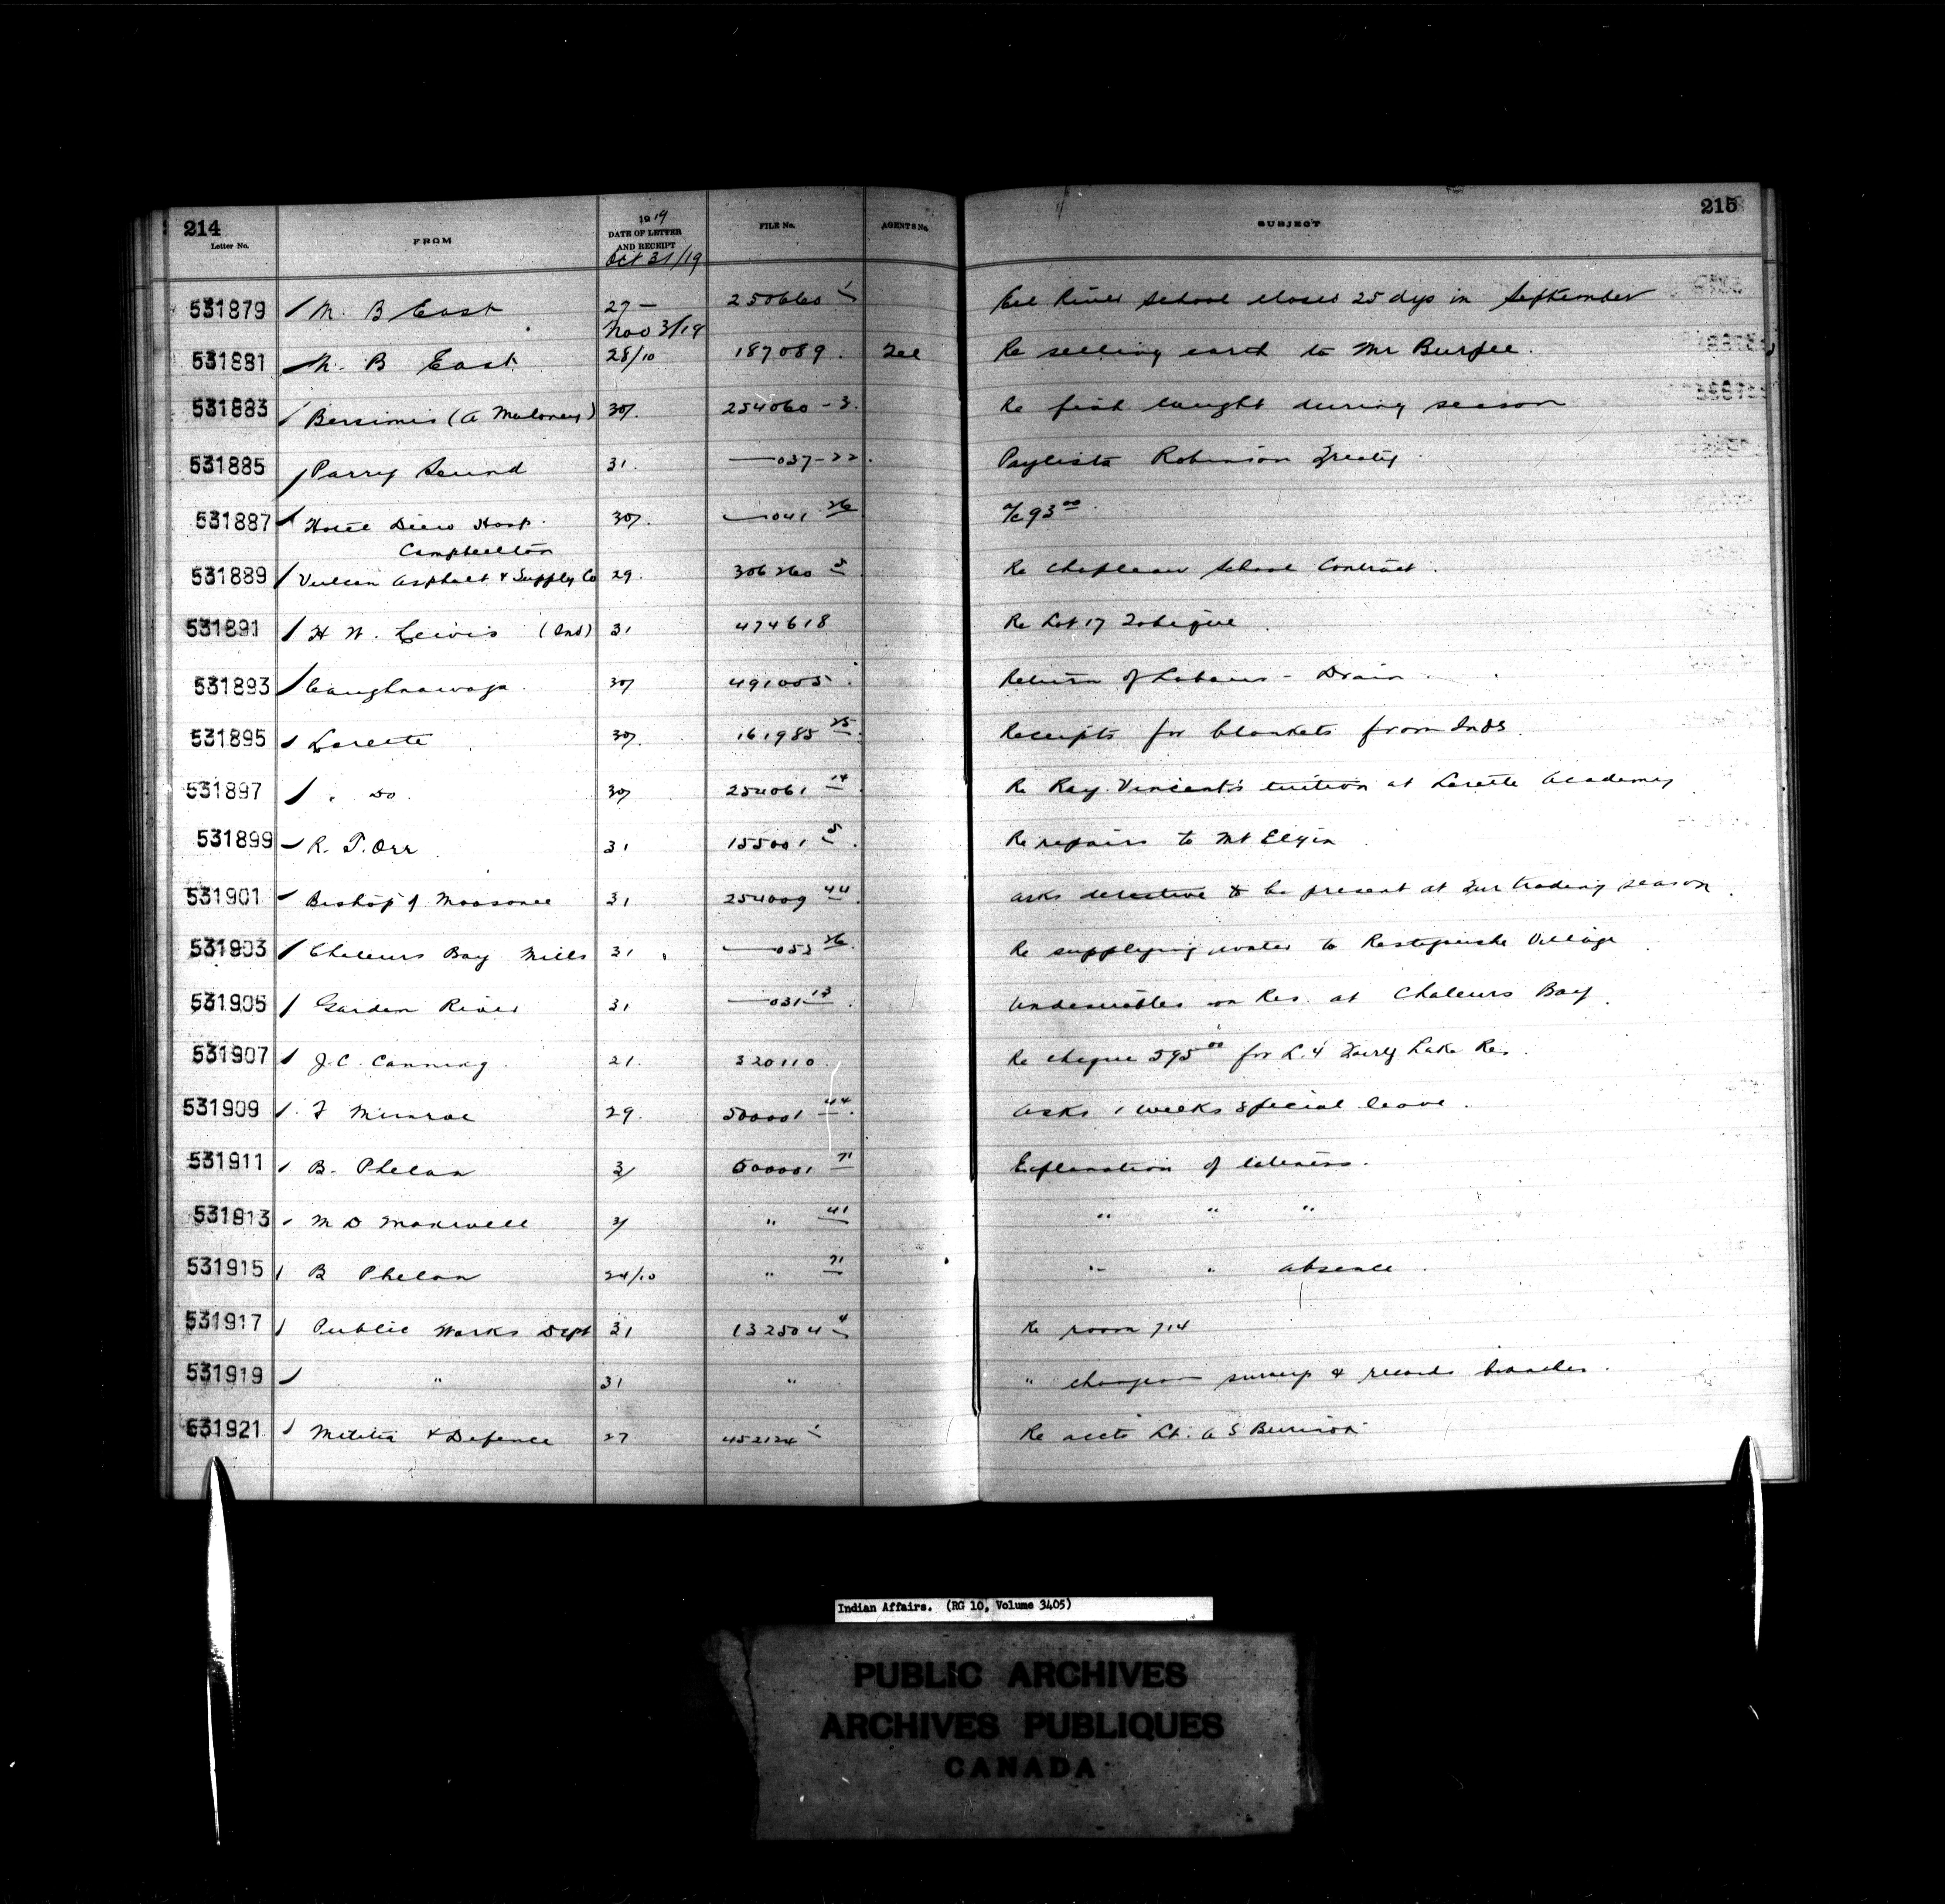 214
215
Letter No.
FROM
1919
DATE OF LETTER
AND RECEIPT
FILE No.
AGENTS No.
SUBJECT
Oct 31/19
531879 M. B East 27 — 250660 Eel River School closed 25 dys in September
Nov 3/19
531881 M. B East 28/10 187089 Tel Re selling earth to Mr Burpee.
531883 Bersimis (A Maloney) 30 254060-3 Re fish caught during season
531885 Parry Sound 31 —037-22 Paylists Robinson Treaty
531887 Hotel Dieu Hosp. 30 —041 26 a/c 93 00
Campbellton
531889 Vulcan Asphalt & Supply Co 29. 306260 Re Chapleau School Contract.
531891 H W. Lewis (Ind) 31 474618 Re Lot 17 Tobique
531893 Caughnawaga 30 491005 Return of Labour - Drain
531895 Lorette 30 161985 25 Receipts for blankets from Inds.
531897 " Do. 30 254061 14 Re Ray. Vincent's tuition at Lorette Academy
531899 R. T. Orr 31 155001 5 Re repairs to Mt Elgin
531901 Bishop of Moosonee 31 254009 44 asks detective to be present at Fur trading season.
531903 Chaleurs Bay Mills 31 —052 26 Re supplying water to Restigouche Village
531905 Garden River 31 —031 13 Undesirables on Res. at Chaleurs Bay.
531907 J.C. Canning 21. 320110 Re cheque 595 00 for L. 4 Fairy Lake Res.
531909 F Munroe 29. 500001 44 Asks 1 weeks special leave.
531911 B. Phelan 31 500001 71 Explanation of lateness.
531913 M D Maxwell 31 " 41 " " "
531915 B Phelan 24/10 " 71 " " absence
531917 Public Works Dept 31 132504 4 Re room 714
531919 " 31 " " changes in survey & records branches.
531921 Militia & Defence 27 452124 Re accts Lt. A S
Indian Affairs. (RG 10, Volume 3405)
PUBLIC ARCHIVES
ARCHIVES PUBLIQUES
CANADA